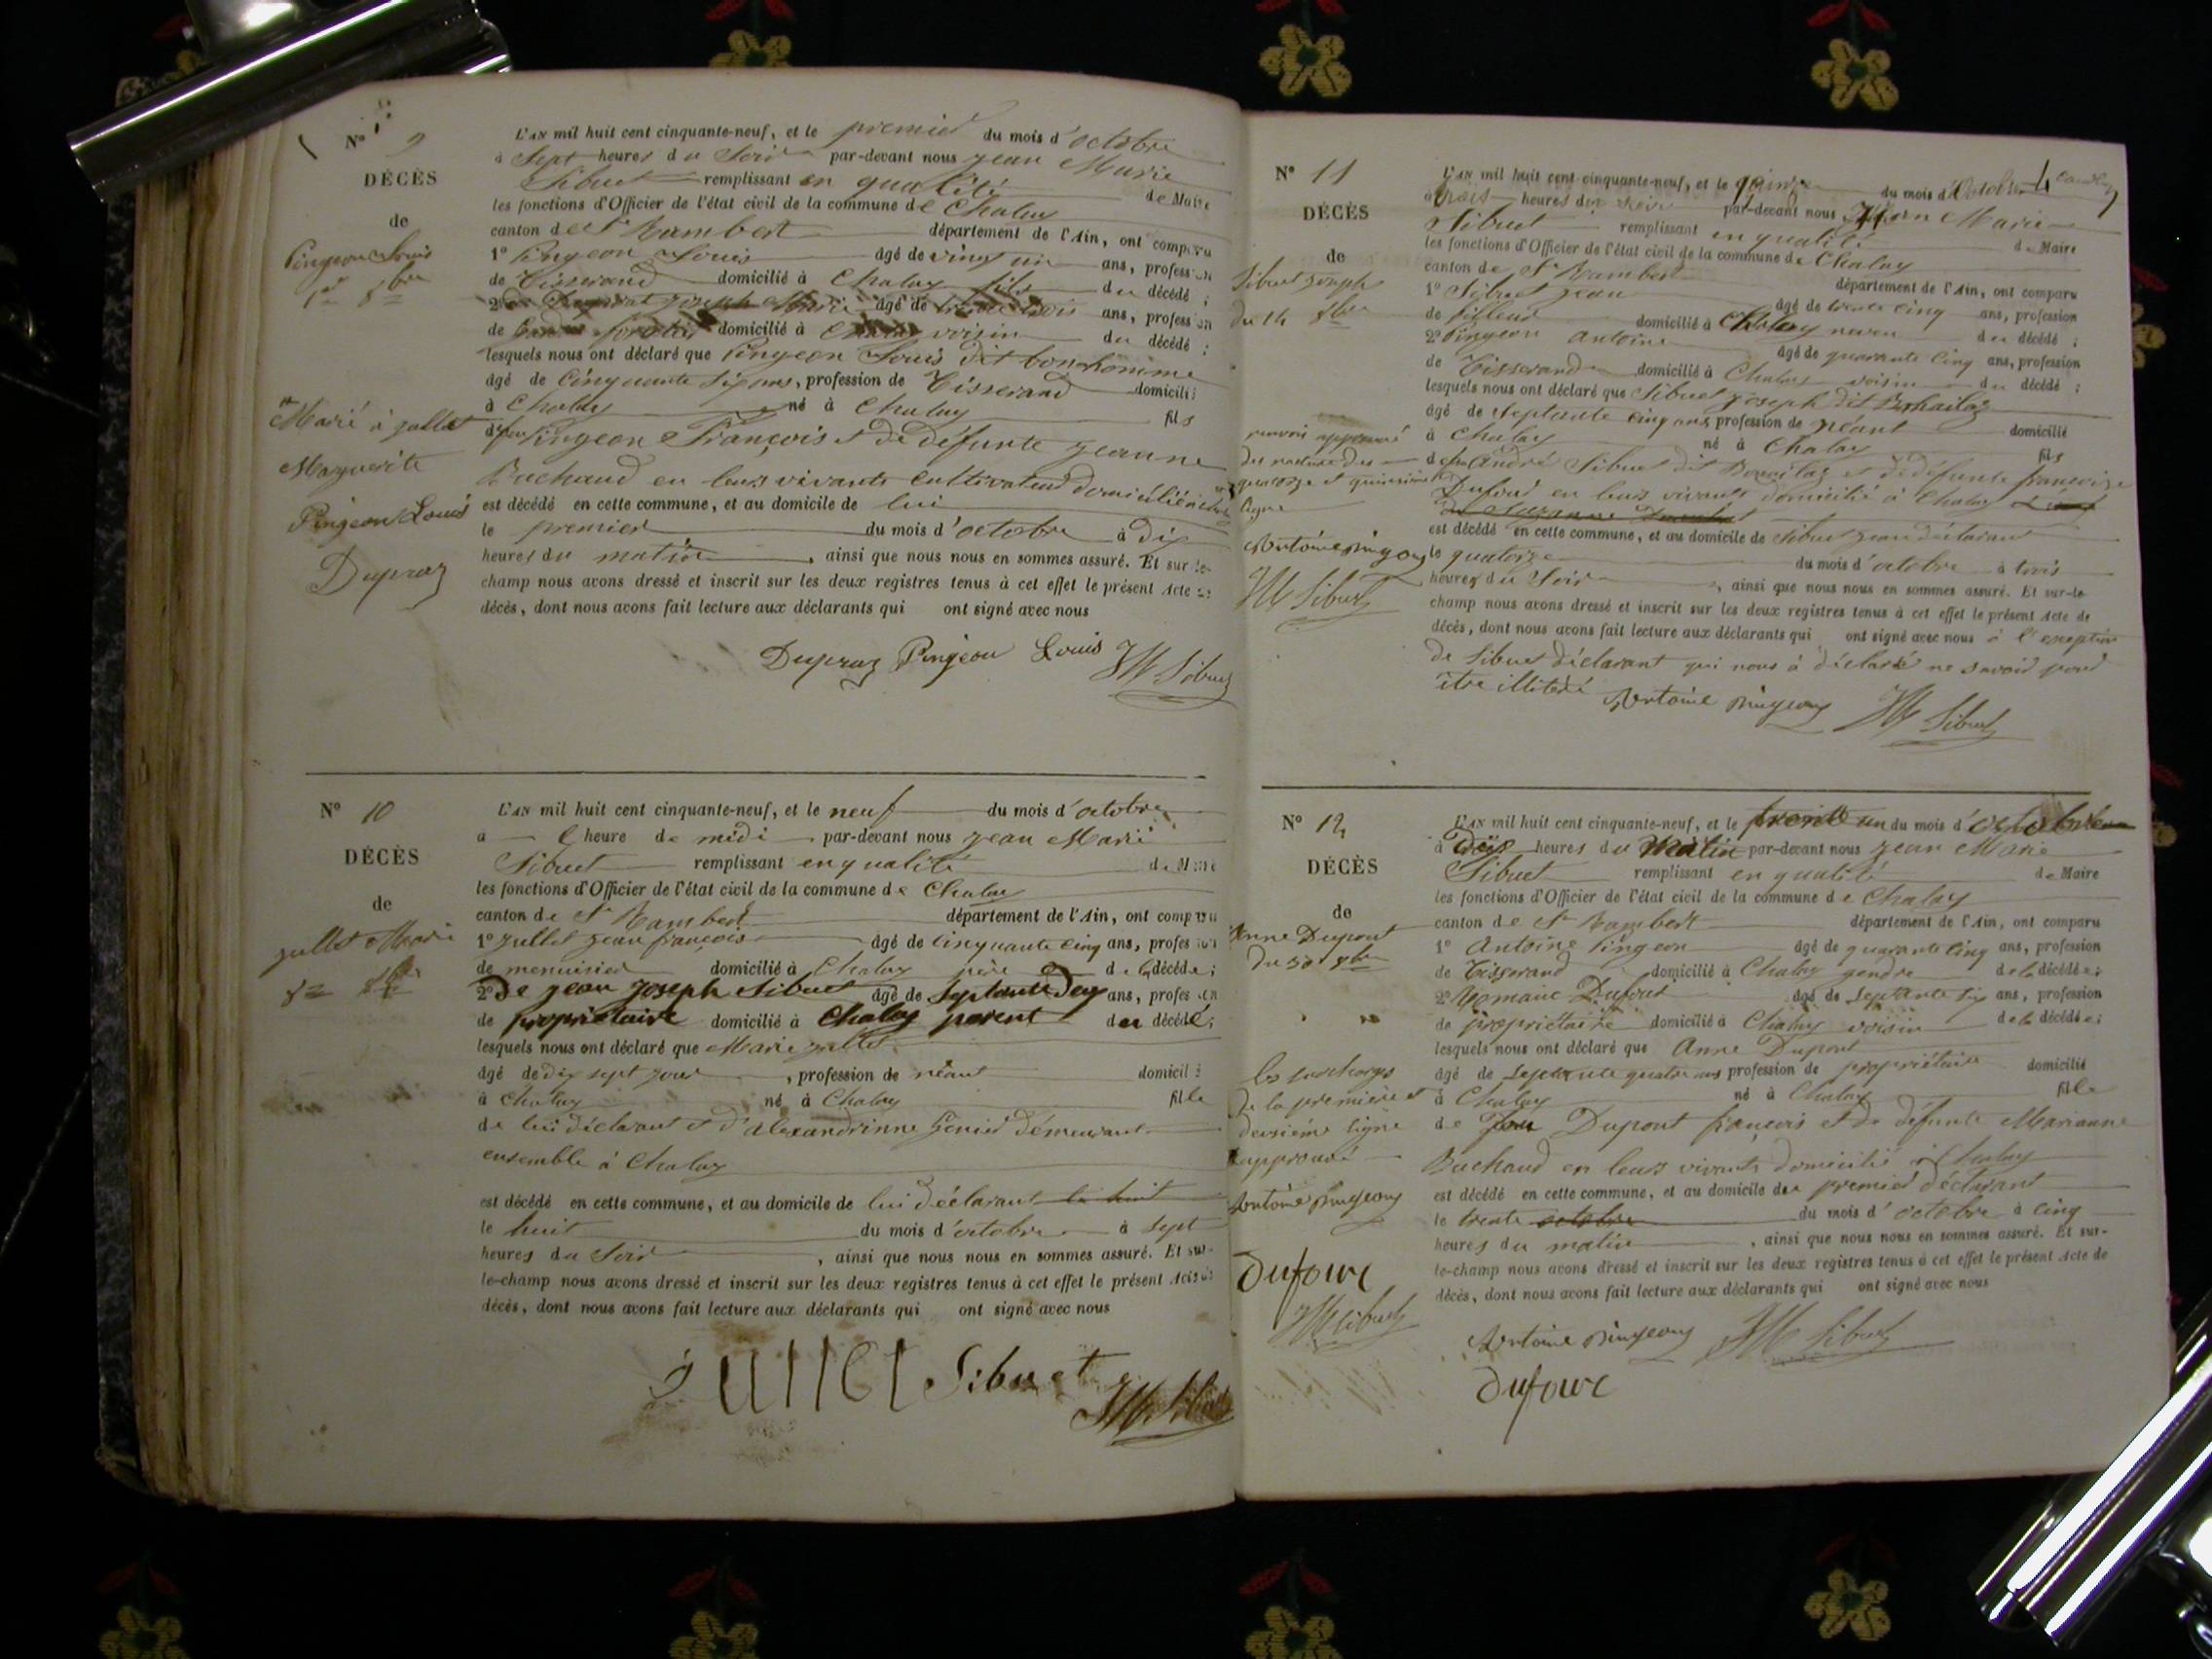 N° 9
DÉCÈS
de
Pingeon Louis
1er 8bre
Marié à Jullet
Marguerite
Pingeon Louis
Dupraz
L'AN mil huit cent cinquante-neuf, et le premier du mois d'octobre
à Sept heures du Soir par-devant nous jean Marie
Sibuet remplissant en qualité de Maire
les fonctions d'Officier de l'état civil de la commune de Chaley
canton de St Rambert département de l'Ain, ont comparu
1° Pingeon Louis âgé de vingt un ans, profession
de Tisserand domicilié à Chaley fils du décédé ;
2° Dupraz joseph Marie âgé de trente trois ans, profession
de forestier domicilié à Chaley voisin du décédé ;
lesquels nous ont déclaré que Pingeon Louis dit bonhomme
âgé de Cinquante six ans, profession de Tisserand domicilié
à Chaley né à Chaley fils
de feu Pingeon François et de défunte jeanne
Bachaud en leurs vivants Cultivateurs domiciliés à
est décédé en cette commune, et au domicile de lui
le premier du mois d'octobre à dix
heures du matin, ainsi que nous nous en sommes assuré. Et sur-le-
champ nous avons dressé et inscrit sur les deux registres tenus à cet effet le présent Acte de
décès, dont nous avons fait lecture aux déclarants qui ont signé avec nous
Dupraz Pingeon Louis JM Sibuet
N° 10
DÉCÈS
de
jullet Marie
8 8bre
L'AN mil huit cent cinquante-neuf, et le neuf du mois d'octobre
a l heure de midi par-devant nous jean Marie
Sibuet remplissant en qualité de Maire
les fonctions d'Officier de l'état civil de la commune de Chaley
canton de St Rambert département de l'Ain, ont comparu
1° jullet jean françois âgé de cinquante cinq ans, profession
de menuisier domicilié à Chaley père de la décédée ;
2° De jean joseph Sibuet âgé de septante Deux ans, profession
de propriétaire domicilié à Chaley parent du décédé ;
lesquels nous ont déclaré que Marie jullet
âgé de dix sept jour, profession de néant domicilié
à Chaley né à Chaley fille
de lui déclarant et d'alexandrinne Genier demeurant
ensemble à Chaley
est décédé en cette commune, et au domicile de lui déclarant le huit
le huit du mois d'octobre à sept
heures du Soir, ainsi que nous nous en sommes assuré. Et sur-
le-champ nous avons dressé et inscrit sur les deux registres tenus à cet effet le présent Acte de
décès, dont nous avons fait lecture aux déclarants qui ont signé avec nous
jullet Sibuet JM Sibuet
N° 11
DÉCÈS
de
Sibuet joseph
du 14 8bre
quatorze et quinzième
ligne
Antoine pingeon
JM Sibuet
L'AN mil huit cent cinquante-neuf, et le quinze du mois d'Octobre
à trois heures du soir par-devant nous Jean Marie
Sibuet remplissant en qualité de Maire
les fonctions d'Officier de l'état civil de la commune de Chaley
canton de St Rambert département de l'Ain, ont comparu
1° Sibuet jean âgé de trente cinq ans, profession
de domicilié à Chaley neveu du décédé ;
2° Pingeon Antoine âgé de quarante cinq ans, profession
de Tisserand domicilié à Chaley voisin du décédé ;
lesquels nous ont déclaré que Sibuet joseph dit
âgé de septante cinq ans, profession de néant domicilié
à Chaley né à Chaley fils
de feu André Sibuet dit et de défunte françoise
Dufour en leurs vivants domicilié à Chaley
est décédé en cette commune, et au domicile de Sibuet jean déclarant
le quatorze du mois d'octobre à trois
heures du Soir, ainsi que nous nous en sommes assuré. Et sur-le-
champ nous avons dressé et inscrit sur les deux registres tenus à cet effet le présent Acte de
décès, dont nous avons fait lecture aux déclarants qui ont signé avec nous à l'exeption
de Sibuet déclarant qui nous à déclaré ne savoir pour
être illitéré Antoine pingeon JM Sibuet
N° 12
DÉCÈS
de
Anne Dupont
du 30 8bre
les surcharges
de la première et
deusième ligne
approuvé
Antoine pingeon
Dufour
JM Sibuet
L'AN mil huit cent cinquante-neuf, et le trente un du mois d'octobre
à Dix heures du Matin par-devant nous jean Marie
Sibuet remplissant en qualité de Maire
les fonctions d'Officier de l'état civil de la commune de Chaley
canton de St Rambert département de l'Ain, ont comparu
1° Antoine Pingeon âgé de quarante cinq ans, profession
de Tisserand domicilié à Chaley gendre de la décédée ;
2° Romain Dufour âgé de septante six ans, profession
de propriétaire domicilié à Chaley voisin de la décédée ;
lesquels nous ont déclaré que Anne Dupont
âgé de Septante quatre ans profession de propriétaire domicilié
à Chaley né à Chaley fille
de feu Dupont françois et de défunte Marianne
Bachaud en leurs vivants domicilié à Chaley
est décédé en cette commune, et au domicile du premier déclarant
le trente octobre du mois d'octobre à cinq
heures du matin, ainsi que nous nous en sommes assuré. Et sur-
le-champ nous avons dressé et inscrit sur les deux registres tenus à cet effet le présent Acte de
décès, dont nous avons fait lecture aux déclarants qui ont signé avec nous
Antoine pingeon JM Sibuet
Dufour